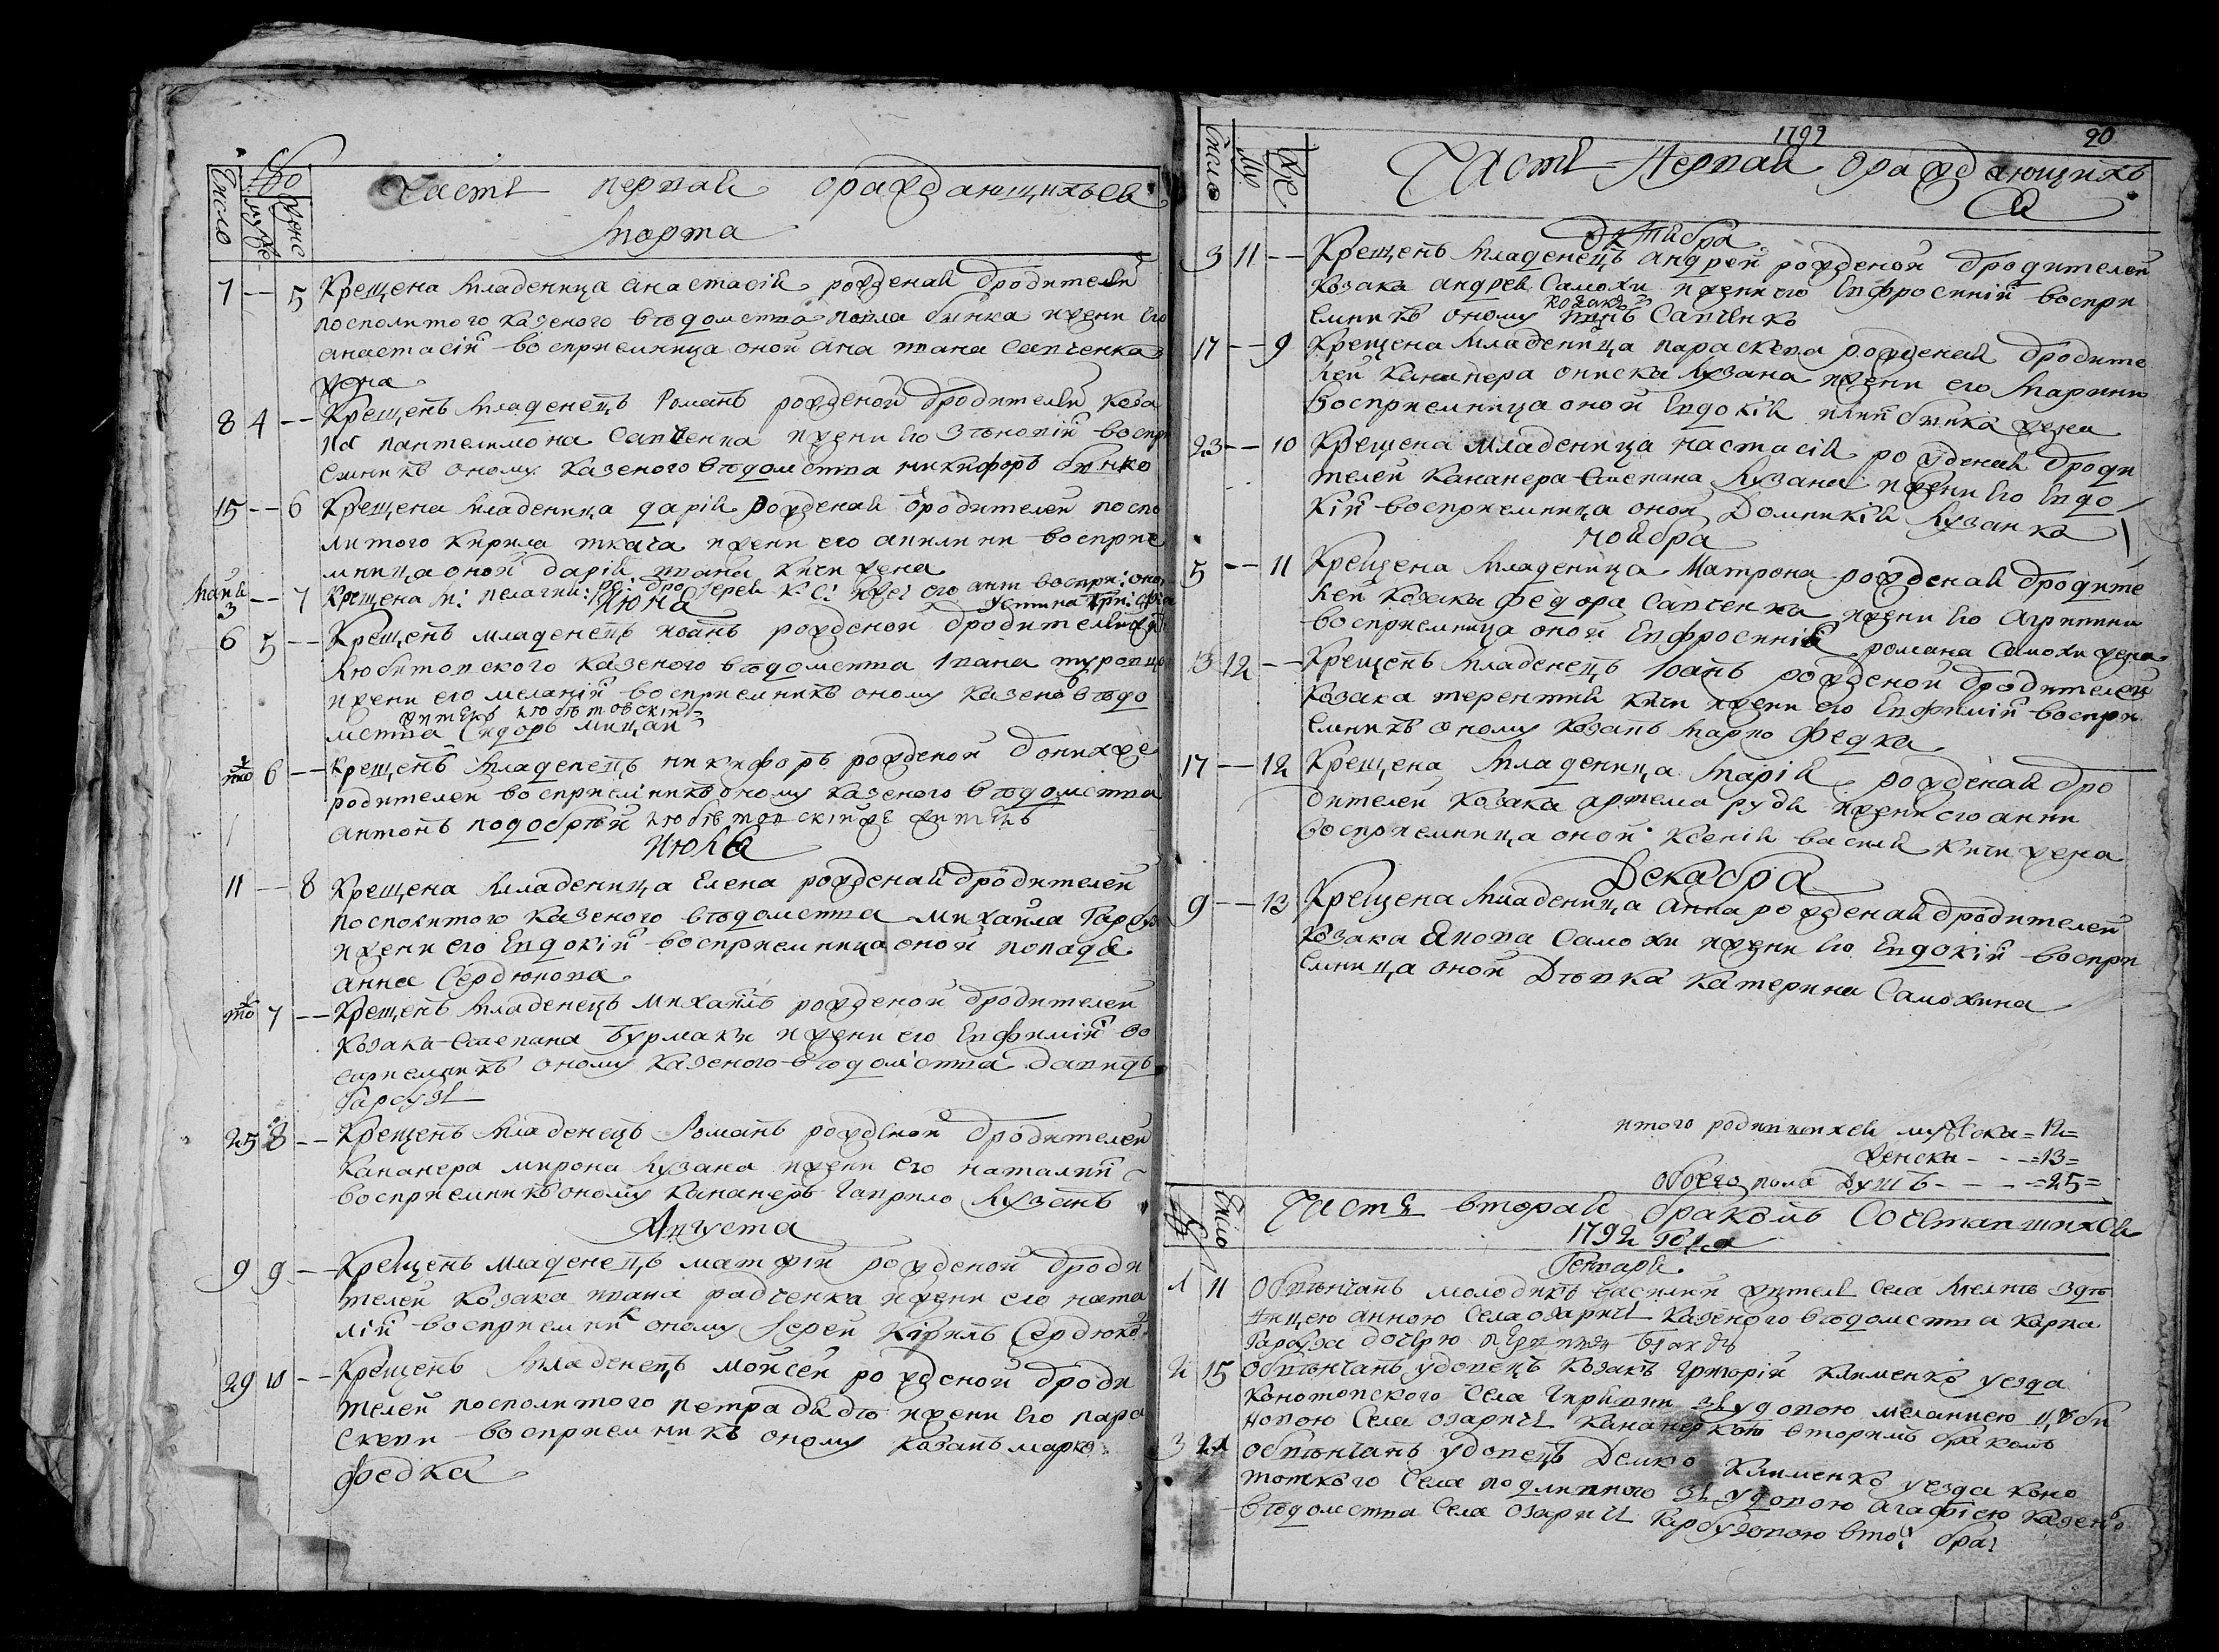 Число
Мужс
Женс
Часть первая ораждающихъся
Марта
7 — 5 Крещена младеница анастасія рожденая ѿродителей
посполитого казеного вѣдомства павла бичка и жени его
анастасіи восприемница оной ана ивана савченка
жена
8 4 — Крещенъ младенецъ романъ рожденой ѿродителей коза
ка пантелимона савченка и жени его зѣновіи воспри
емникъ оному казеного вѣдомства никифоръ бичко
15 — 6 Крещена младеница дарія рожденая ѿродителей поспо
литого кирила ткача и жени его акилини восприе
мница оной дарія ивана кичи жена
Маія
3 — 7 Крещена м: пелагия: ро: ѿро: іерея К: С: и же: его анн воспри: оно:
Июня
6 5 — Крещенъ младенецъ иоанъ рожденой ѿродителей
любитовского казеного вѣдомства ивана туровца
и жени его меланіи восприемникъ оному казеного вѣдо
житель любѣтовскій
мства сидоръ мицай
то 6 — Крещенъ младенецъ никифоръ рожденой ѿ онихже
родителей восприемникъ оному казеного вѣдомства
антонъ подобрѣй любѣтовскій же житель
Июля
11 — 8 Крещена младеница елена рожденая ѿродителей
посполитого казеного вѣдомства михайла гарбуза
и жени его евдокіи восприемница оной попадя
анна сердюкова
то 7 — Крещенъ младенецъ михаилъ рожденой ѿродителей
козака степана бурмаки и жени его евфиміи во
сприемникъ оному казеного вѣдомства давидъ
гарбузъ
25 8 — Крещенъ младенецъ романъ рожденой ѿродителей
кананера мирона лузана и жени его наталии
восприемникъ оному кананеръ гаврило лузанъ
Августа
9 9 — Крещенъ младенецъ матфій рожденой ѿроди
телей козака ивана радченка и жени его ната
лій восприемник оному іерей кирилъ сердюковъ
29 10 — Крещенъ младенецъ моисей рожденой ѿроди
телей посполитого петра дядѣ и жени его пара
скеви восприемникъ оному козакъ марко
федка
1792 90
Число
Му
Же
Часть Первая ораждающихъ
ся
Октября
3 11 — Крещенъ младенецъ андрей рожденой ѿродителей
козака андрея самохи и жени его евфросиніи воспри
козакъ
емникъ оному савченко
17 — 9 Крещена младеница параскева рожденая ѿродите
лей кананера ониска лузана и жени его марини
восприемница оной евдокія иліи бичка жена
23 — 10 Крещена младеница настасія рожденая ѿроди
телей кананера степана лузана и жени его евдо
кіи восприемница оной домникія лузанка
ноября
5 — 11 Крещена младеница матрона рожденая ѿродите
лей козака федора савченка и жени его агрипини
восприемница оной евфросинія романа самохи жена
13 12 — Крещенъ младенецъ іоанъ рожденой ѿродителей
козака терентия кичи и жени его евфиміи воспри
емникъ оному козакъ марко федка
17 — 12 Крещена младеница марія рожденая ѿро
дителей козака артема рудя и жени его анни
восприемница оной ксенія василя кичи жена
Декабря
9 — 13 Крещена младеница анна рожденая ѿродителей
козака якова самохи и жени его евдокіи воспри
емница оной дѣвка катерина самохина
итого родившихся мужеска = 12 =
женска - - = 13 =
обоего пола душъ - - - = 25 =
Число
Часть вторая бракомъ сочетавшихся
1792 года
Генваря
1 11 Обвѣнчанъ молодикъ василий житель села мелнѣ здѣ
вицею анною села озаричъ казеного вѣдомства карпа
гарбуза дочерю первимъ бракомъ
2 15 Обвѣнчанъ удовецъ козакъ григорій клименко уезда
конотопского села зъ удовою меланиею
новою села озаричъ кананеркою вторимъ бракомъ
3 21 Обвѣнчанъ удовецъ демко клименко уезда коно
топкого села подлипного зъ удовою агафиею казеного
вѣдомства села озаричъ гарбузовою вто: бра: